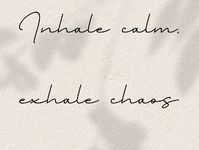 Inhale calm,
exhale chaos